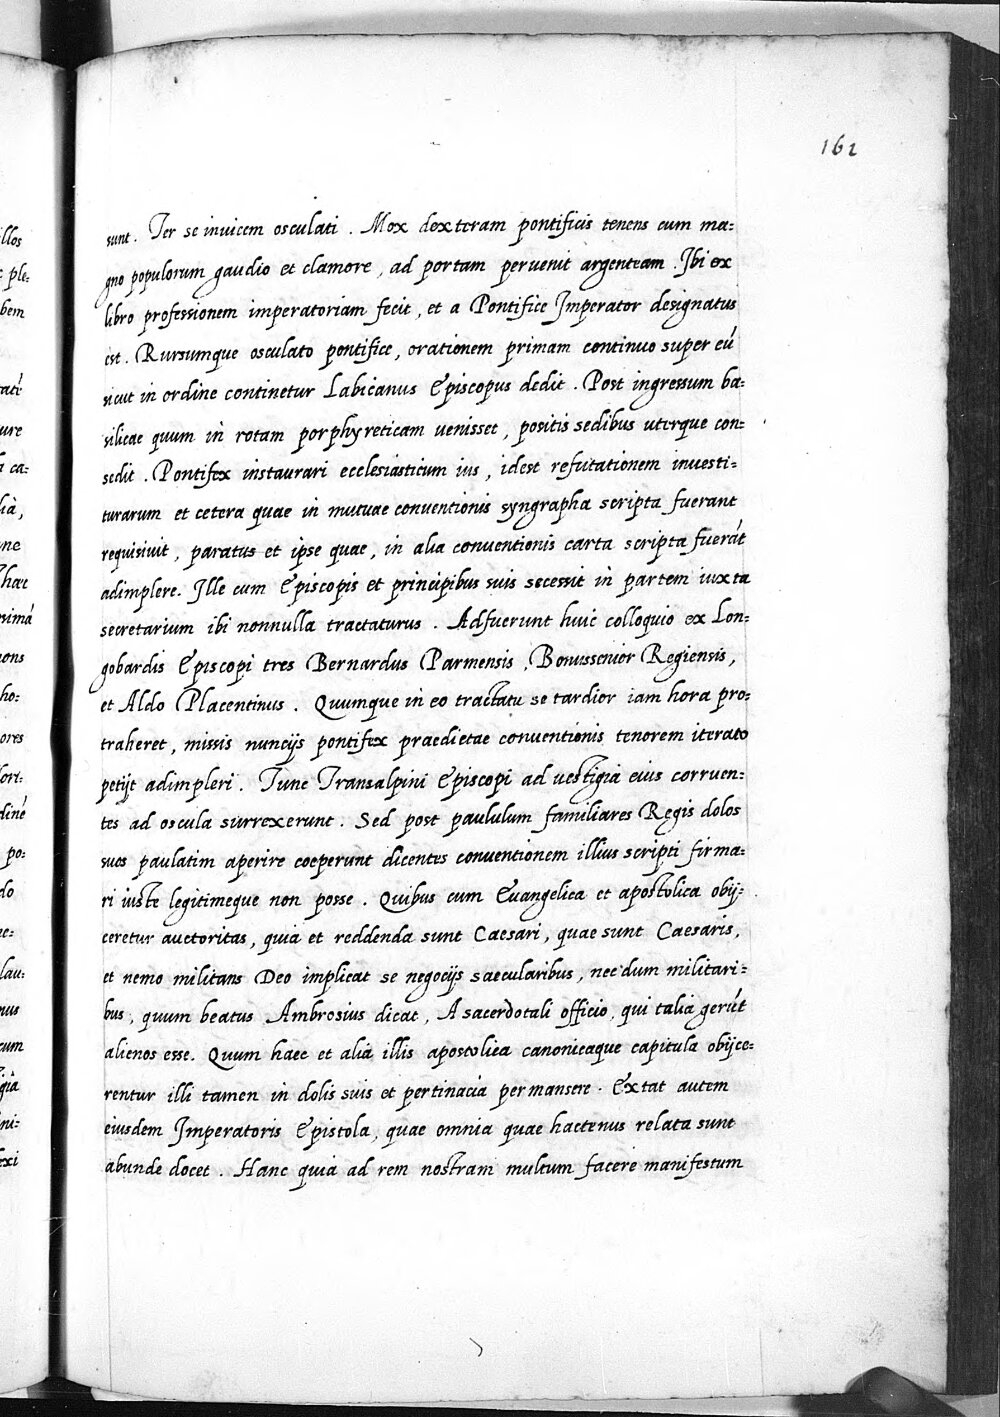 162
sunt. Ter se inuicem osculati. Mox dexteram pontificis tenens cum ma=
gno populorum gaudio et clamore, ad portam peruenit argenteam. Ibi ex
libro professionem imperatoriam fecit, et a Pontifice Imperator designatus
est. Rursumque osculato pontifice, orationem primam continuo super eū
sicut in ordine continetur Labicanus Episcopus dedit. Post ingressum ba=
silicae quum in rotam porphyreticam uenisset, positis sedibus uterque con=
sedit. Pontifex instaurari ecclesiasticum ius, idest refutationem inuesti=
turarum et cetera quae in mutuae conuentionis syngrapha scripta fuerant
requisiuit, paratus et ipse quae, in alia conuentionis carta scripta fuerāt
adimplere. Ille cum Episcopis et principibus suis secessit in partem iuxta
secretarium ibi nonnulla tractaturus. Adfuerunt huic colloquio ex Lon=
gobardis Episcopi tres Bernardus Parmensis, Bonussenior Regiensis,
et Aldo Placentinus. Quumque in eo tractatu se tardior iam hora pro=
traheret, missis nuncijs pontifex praedictae conuentionis tenorem iterato
petijt adimpleri. Tunc Transalpini Episcopi ad uestigia eius corruen=
tes ad oscula surrexerunt. Sed post paululum familiares Regis dolos
suos paulatim aperire coeperunt dicentes conuentionem illius scripti firma=
ri iuste legitimeque non posse. Quibus cum Euangelica et apostolica obij=
ceretur auctoritas, quia et reddenda sunt Caesari, quae sunt Caesaris,
et nemo militans Deo implicat se negocijs saecularibus, necdum militari=
bus, quum beatus Ambrosius dicat, A sacerdotali officio, qui talia gerūt
alienos esse. Quum haec et alia illis apostolica canonicaque capitula obijce=
rentur illi tamen in dolis suis et pertinacia permansere. Extat autem
eiusdem Imperatoris Epistola, quae omnia quae hactenus relata sunt
abunde docet. Hanc quia ad rem nostram multum facere manifestum